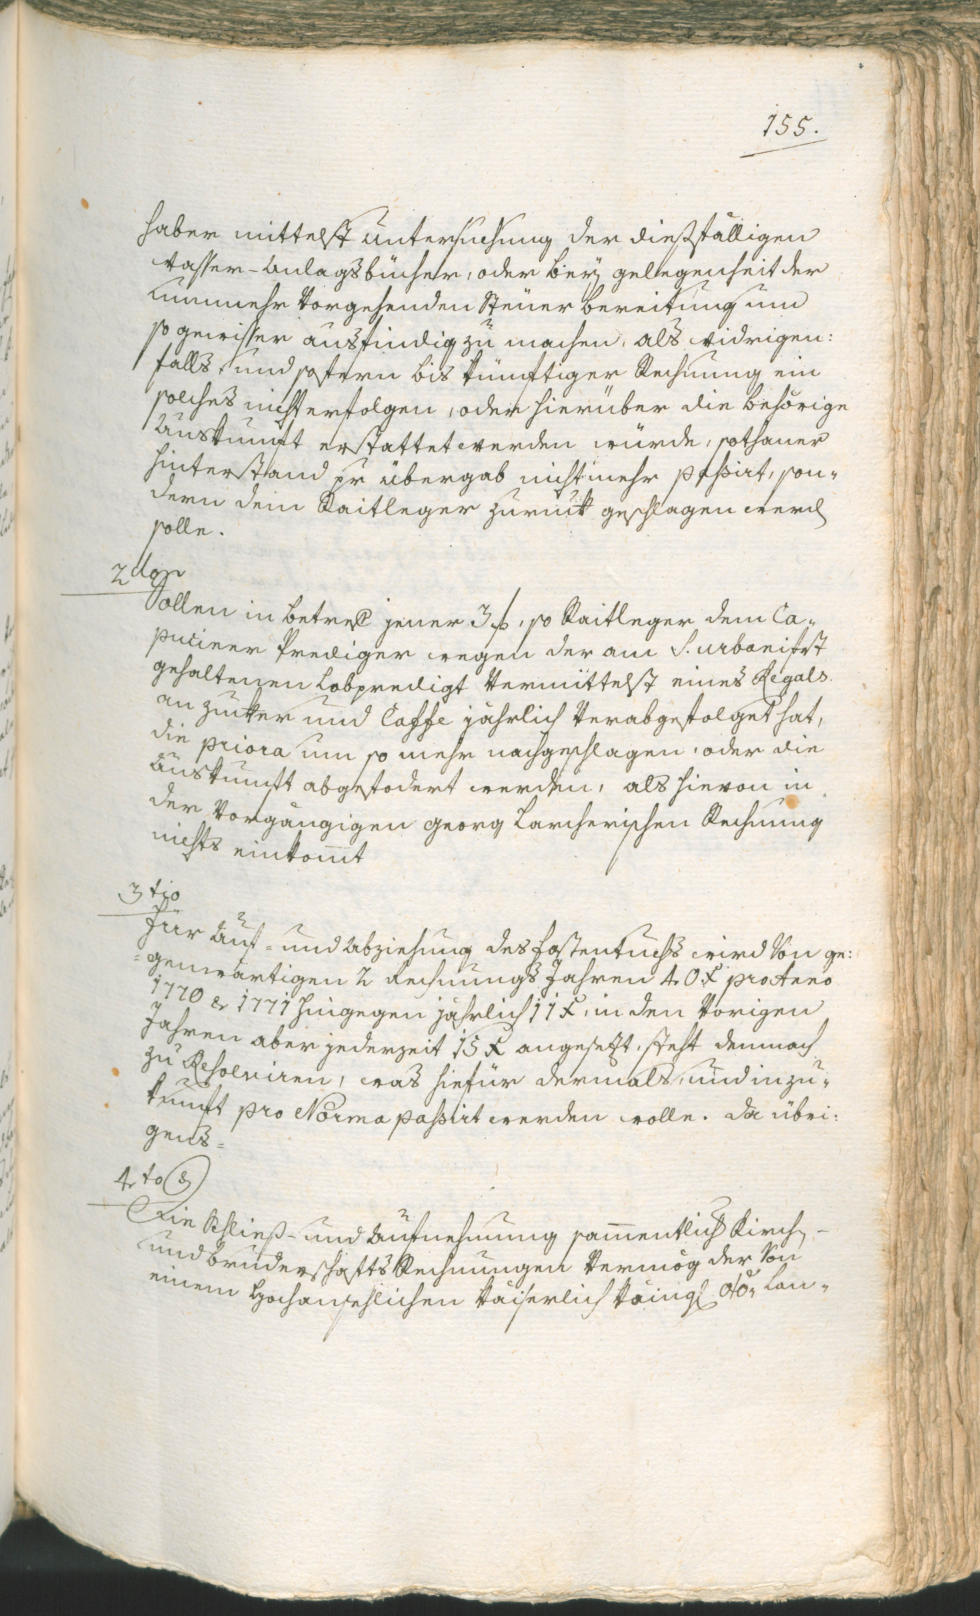 155.
haber mittelst Untersuchung der dießfälligen
Vasser-Anlagsbücher, oder beÿ gelegenheit der
nunmehr Vorgehenden Steüer bereitung um
so gewisser ausfindig zu machen, als widrigen:
falls, und sofern bis künftiger Rechnung ein
solches nicht erfolgen, oder hierüber die behörige
Auskunft erstattet werden würde, sothaner
Hinterstand pr übergab nicht mehr passirt, son„
dern dem Raitleger zuruk geschlagen werd
solle.
2do
Sollen in betref jener 3 f, so Raitleger dem Ca„
puciner Prediger wegen der am S. urbanifest
gehaltenen Lobpredigt Vermittelst eines Regals
an zucker und Caffe jährlich Verabgefolget hat,
die priora um so mehr nachgeschlagen, oder die
Auskunft abgefodert werden, als hievon in
der Vorgängigen Georg Larcherischen Rechnung
nichts einkom̄t
3tio
Für Auf- und Abziehung des Fastentuchs wird Von ge:
=genwärtigen 2 Rechnungs Jahren 40 x pro Anno
1770 & 1771 hingegen jährlich 11 x, in den Vorigen
Jahren aber jederzeit 15 x angesetzt, steht demnach
zu Resolviren, was hiefür dermals, und inzu„
kunft pro Norma passirt werden wolle. da übri:
gens=
4to
Die Schließ- und Aufnehmung sam̄entlich Kirch-
und bruderschafts Rechnungen Vermög der Von
einem Hochansehlichen Kaÿserlich Königl OÖ„ Lan„